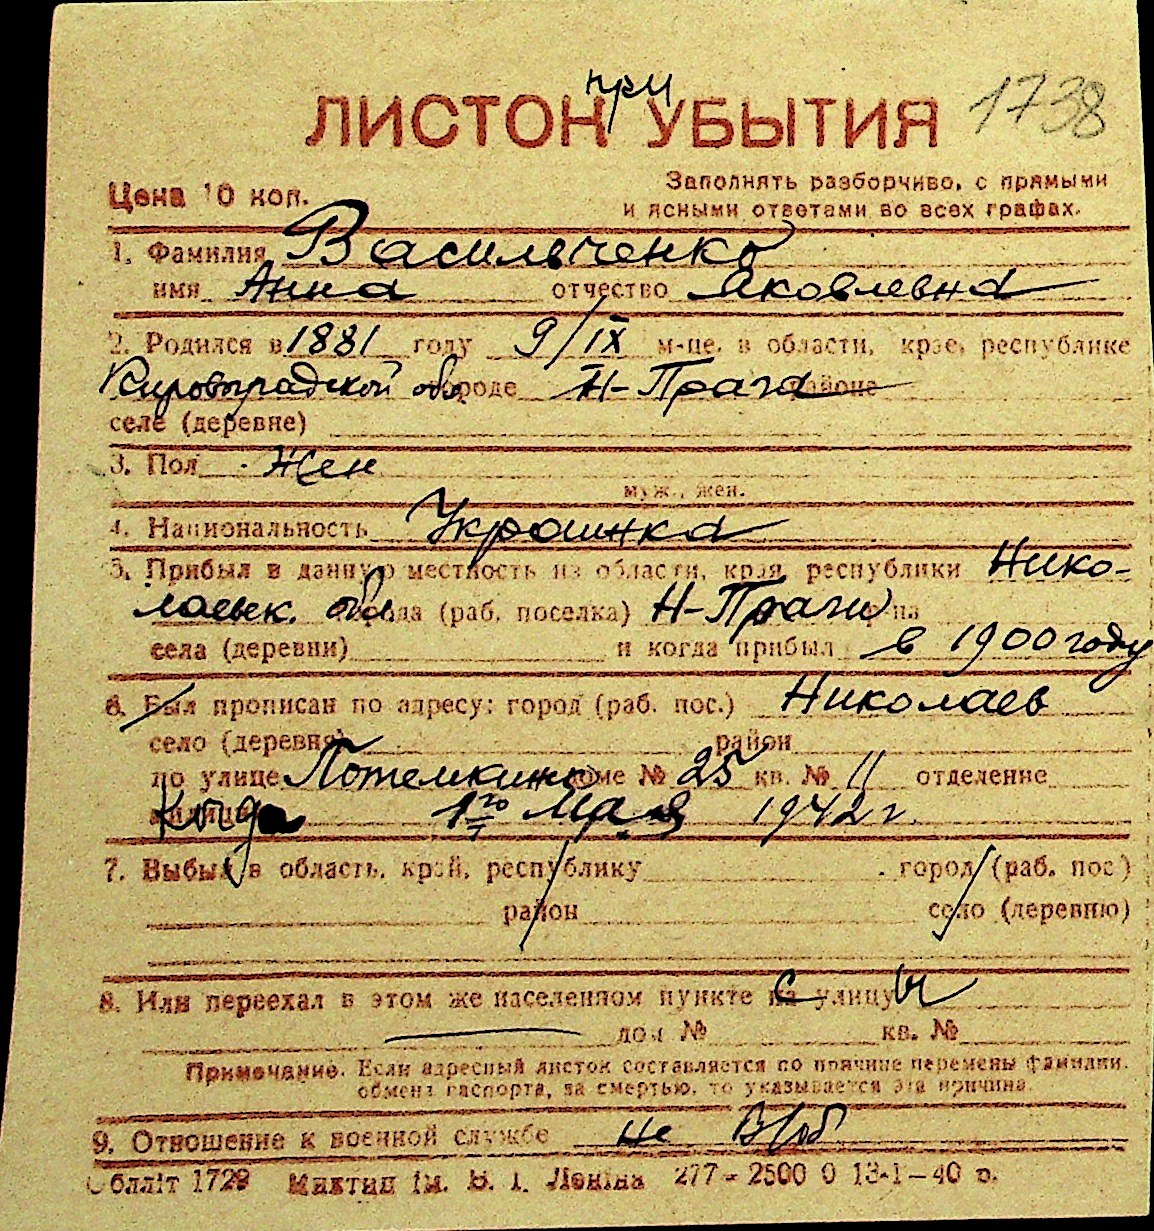 при
ЛИСТОК УБЫТИЯ 1738
Цена 10 коп.
Заполнять разборчиво, с прямыми
и ясными ответами во всех графах.
1. Фамилия Васильченко
имя Анна отчество Яковлевна
2. Родился в 1881 году 9/IX м-це, в области, крае, республике
Кировоградской обл. городе Н-Прага района
селе (деревне)
3. Пол Жен
муж., жен.
4. Национальность Украинка
5. Прибыл в данную местность из области, края, республики Нико-
лаевск. обл города (раб. поселка) Н-Праги
села (деревни) и когда прибыл в 1900 году
6. Был прописан по адресу: город (раб. пос.) Николаев
село (деревня) район
по улице Потемкинс доме № 25 кв. № 11 отделение
милиции когда 1го Мая 1942 г.
7. Выбыл в область, край, республику город (раб. пос.)
район село (деревню)
8. Или переехал в этом же населенном пункте на с улицу ы
дом № кв. №
Примечание. Если адресный листок составляется по причине перемены фамилии,
обмена паспорта, за смертью, то указывается эта причина.
9. Отношение к военной службе не в/об
Обліт 1729 ім. В. І. Леніна 277-2500 0 13-1-40 р.